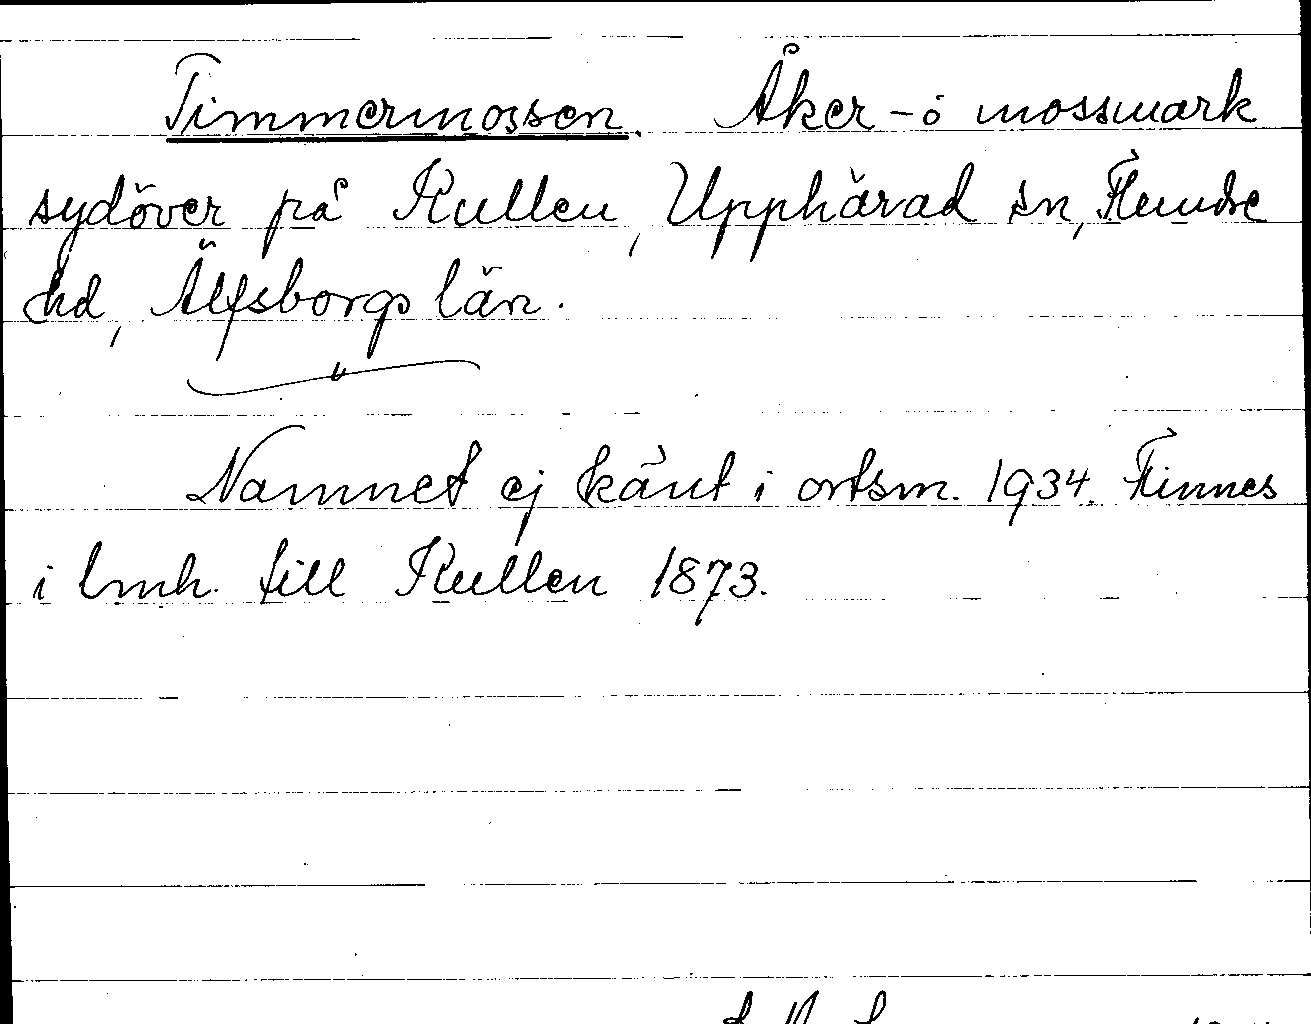 Timmermossen. Åker- o mossmark
sydöver på Kullen, Upphärad sn, Flundre
hd, Älfsborgs län.
Namnet ej känt i ortsm. 1934. Finnes
i lmh. till Kullen 1873.